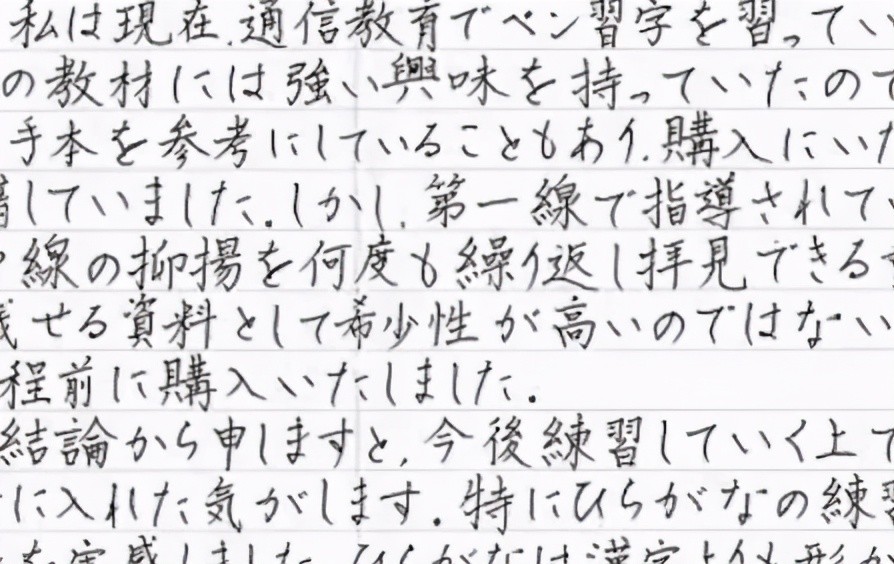 私は現在、通信教育でペン習字を習ってい
の教材には強い興味を持っていたので
手本を参考にしていることもあり、購入にいた
していました。しかし、第一線で指導されてい
線の抑揚を何度も繰り返し拝見できる
せる資料として希少性が高いのではない
程前に購入いたしました。
結論から申しますと、今後練習していく上で
に入れた気がします。特にひらがなの練習
を実感しました。ひらがなは漢字よりも形が